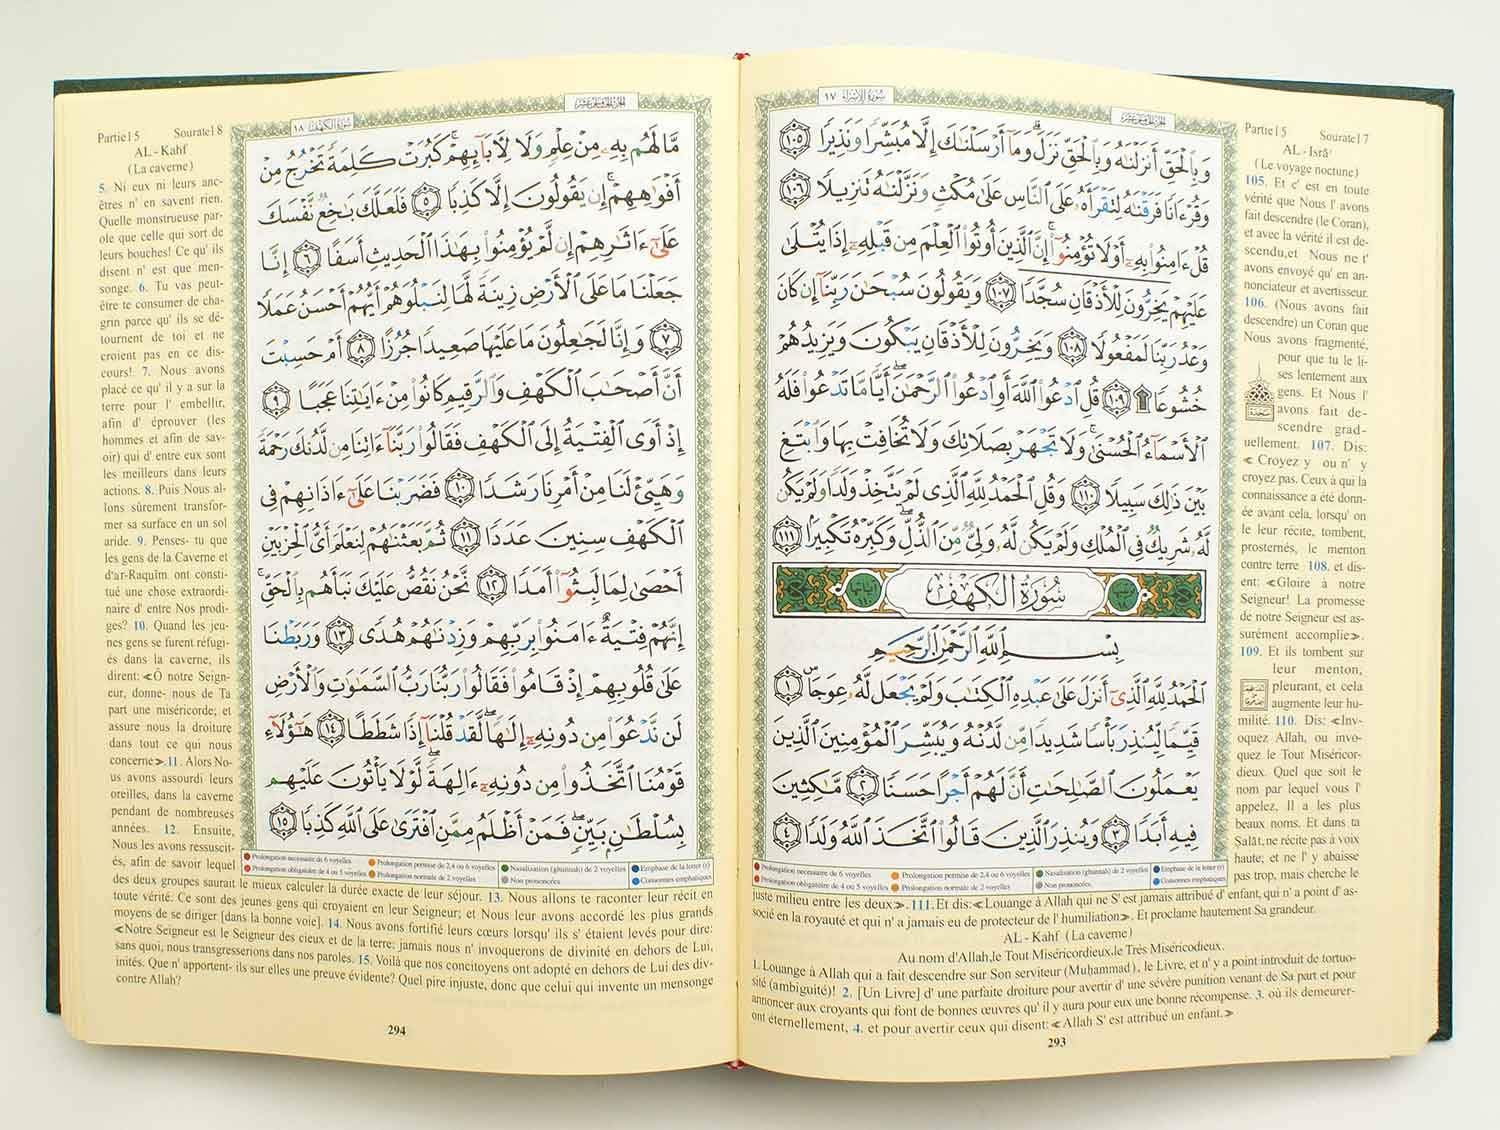 سورة الإسراء ١٧
الجزء الخامس عشر
وَبِالْحَقِّ أَنزَلْنَٰهُ وَبِالْحَقِّ نَزَلَ ۗ وَمَآ أَرْسَلْنَٰكَ إِلَّا مُبَشِّرًا وَنَذِيرًا ١٠٥
وَقُرْءَانًا فَرَقْنَٰهُ لِتَقْرَأَهُۥ عَلَى النَّاسِ عَلَىٰ مُكْثٍ وَنَزَّلْنَٰهُ تَنزِيلًا ١٠٦
قُلْ ءَامِنُوا۟ بِهِۦٓ أَوْ لَا تُؤْمِنُوٓا۟ ۚ إِنَّ الَّذِينَ أُوتُوا۟ الْعِلْمَ مِن قَبْلِهِۦٓ إِذَا يُتْلَىٰ
عَلَيْهِمْ يَخِرُّونَ لِلْأَذْقَانِ سُجَّدًا ١٠٧ وَيَقُولُونَ سُبْحَٰنَ رَبِّنَآ إِن كَانَ
وَعْدُ رَبِّنَا لَمَفْعُولًا ١٠٨ وَيَخِرُّونَ لِلْأَذْقَانِ يَبْكُونَ وَيَزِيدُهُمْ
خُشُوعًا ۩ ١٠٩ قُلِ ادْعُوا۟ اللَّهَ أَوِ ادْعُوا۟ الرَّحْمَٰنَ ۖ أَيًّا مَّا تَدْعُوا۟ فَلَهُ
الْأَسْمَآءُ الْحُسْنَىٰ ۚ وَلَا تَجْهَرْ بِصَلَاتِكَ وَلَا تُخَافِتْ بِهَا وَابْتَغِ
بَيْنَ ذَٰلِكَ سَبِيلًا ١١٠ وَقُلِ الْحَمْدُ لِلَّهِ الَّذِى لَمْ يَتَّخِذْ وَلَدًا وَلَمْ يَكُن
لَّهُۥ شَرِيكٌ فِى الْمُلْكِ وَلَمْ يَكُن لَّهُۥ وَلِىٌّ مِّنَ الذُّلِّ ۖ وَكَبِّرْهُ تَكْبِيرًۢا ١١١
سُورَةُ الْكَهْفِ
بِسْمِ اللَّهِ الرَّحْمَٰنِ الرَّحِيمِ
الْحَمْدُ لِلَّهِ الَّذِىٓ أَنزَلَ عَلَىٰ عَبْدِهِ الْكِتَٰبَ وَلَمْ يَجْعَل لَّهُۥ عِوَجَا ۜ ١
قَيِّمًا لِّيُنذِرَ بَأْسًا شَدِيدًا مِّن لَّدُنْهُ وَيُبَشِّرَ الْمُؤْمِنِينَ الَّذِينَ
يَعْمَلُونَ الصَّٰلِحَٰتِ أَنَّ لَهُمْ أَجْرًا حَسَنًا ٢ مَّٰكِثِينَ
فِيهِ أَبَدًا ٣ وَيُنذِرَ الَّذِينَ قَالُوا۟ اتَّخَذَ اللَّهُ وَلَدًا ٤
Prolongation nécessaire de 6 voyelles Prolongation permise de 2,4 ou 6 voyelles Nasalisation (ghunnah) de 2 voyelles Emphase de la lettre (r)
Prolongation obligatoire de 4 ou 5 voyelles Prolongation normale de 2 voyelles Non prononcées Consonnes emphatiques
Partie15 Sourate17
AL - Isrā'
(Le voyage noctune)
105. Et c' est en toute
vérité que Nous l' avons
fait descendre (le Coran),
et avec la vérité il est de-
scendu,et Nous ne t'
avons envoyé qu' en an-
nonciateur et avertisseur.
106. (Nous avons fait
descendre) un Coran que
Nous avons fragmenté,
pour que tu le li-
ses lentement aux
gens. Et Nous l'
avons fait de-
scendre grad-
uellement. 107. Dis:
≪ Croyez y ou n' y
croyez pas. Ceux à qui la
connaissance a été donn-
ée avant cela, lorsqu' on
le leur récite, tombent,
prosternés, le menton
contre terre 108. et dis-
ent: ≪Gloire à notre
Seigneur! La promesse
de notre Seigneur est as-
surément accomplie≫.
109. Et ils tombent sur
leur menton,
pleurant, et cela
augmente leur hu-
milité. 110. Dis: ≪Inv-
oquez Allah, ou invo-
quez le Tout Miséricor-
dieux. Quel que soit le
nom par lequel vous l'
appelez, Il a les plus
beaux noms. Et dans ta
Ṣalāt, ne récite pas à voix
haute; et ne l' y abaisse
pas trop, mais cherche le
juste milieu entre les deux≫. 111.Et dis:≪Louange à Allah qui ne S' est jamais attribué d' enfant, qui n' a point d' as-
socié en la royauté et qui n' a jamais eu de protecteur de l' humiliation≫. Et proclame hautement Sa grandeur.
AL - Kahf (La caverne)
Au nom d'Allah,le Tout Miséricordieux,le Trés Miséricodieux.
1. Louange à Allah qui a fait descendre sur Son serviteur (Muḥammad), le Livre, et n' y a point introduit de tortuo-
sité (ambiguité)! 2. [Un Livre] d' une parfaite droiture pour avertir d' une sévère punition venant de Sa part et pour
annoncer aux croyants qui font de bonnes œuvres qu' il y aura pour eux une bonne récompense. 3. où ils demeurer-
ont éternellement, 4. et pour avertir ceux qui disent: ≪ Allah S' est attribué un enfant.≫
293
الجزء الخامس عشر
سورة الكهف ١٨
مَّا لَهُم بِهِۦ مِنْ عِلْمٍ وَلَا لِءَابَآئِهِمْ ۚ كَبُرَتْ كَلِمَةً تَخْرُجُ مِنْ
أَفْوَٰهِهِمْ ۚ إِن يَقُولُونَ إِلَّا كَذِبًا ٥ فَلَعَلَّكَ بَٰخِعٌ نَّفْسَكَ
عَلَىٰٓ ءَاثَٰرِهِمْ إِن لَّمْ يُؤْمِنُوا۟ بِهَٰذَا الْحَدِيثِ أَسَفًا ٦ إِنَّا
جَعَلْنَا مَا عَلَى الْأَرْضِ زِينَةً لَّهَا لِنَبْلُوَهُمْ أَيُّهُمْ أَحْسَنُ عَمَلًا
٧ وَإِنَّا لَجَٰعِلُونَ مَا عَلَيْهَا صَعِيدًا جُرُزًا ٨ أَمْ حَسِبْتَ
أَنَّ أَصْحَٰبَ الْكَهْفِ وَالرَّقِيمِ كَانُوا۟ مِنْ ءَايَٰتِنَا عَجَبًا ٩
إِذْ أَوَى الْفِتْيَةُ إِلَى الْكَهْفِ فَقَالُوا۟ رَبَّنَآ ءَاتِنَا مِن لَّدُنكَ رَحْمَةً
وَهَيِّئْ لَنَا مِنْ أَمْرِنَا رَشَدًا ١٠ فَضَرَبْنَا عَلَىٰٓ ءَاذَانِهِمْ فِى
الْكَهْفِ سِنِينَ عَدَدًا ١١ ثُمَّ بَعَثْنَٰهُمْ لِنَعْلَمَ أَىُّ الْحِزْبَيْنِ
أَحْصَىٰ لِمَا لَبِثُوٓا۟ أَمَدًا ١٢ نَّحْنُ نَقُصُّ عَلَيْكَ نَبَأَهُم بِالْحَقِّ ۚ
إِنَّهُمْ فِتْيَةٌ ءَامَنُوا۟ بِرَبِّهِمْ وَزِدْنَٰهُمْ هُدًى ١٣ وَرَبَطْنَا
عَلَىٰ قُلُوبِهِمْ إِذْ قَامُوا۟ فَقَالُوا۟ رَبُّنَا رَبُّ السَّمَٰوَٰتِ وَالْأَرْضِ
لَن نَّدْعُوَا۟ مِن دُونِهِۦٓ إِلَٰهًا ۖ لَّقَدْ قُلْنَآ إِذًا شَطَطًا ١٤ هَٰٓؤُلَآءِ
قَوْمُنَا اتَّخَذُوا۟ مِن دُونِهِۦٓ ءَالِهَةً ۖ لَّوْلَا يَأْتُونَ عَلَيْهِم
بِسُلْطَٰنٍۭ بَيِّنٍ ۖ فَمَنْ أَظْلَمُ مِمَّنِ افْتَرَىٰ عَلَى اللَّهِ كَذِبًا ١٥
Prolongation nécessaire de 6 voyelles Prolongation permise de 2,4 ou 6 voyelles Nasalisation (ghunnah) de 2 voyelles Emphase de la lettre (r)
Prolongation obligatoire de 4 ou 5 voyelles Prolongation normale de 2 voyelles Non prononcées Consonnes emphatiques
Partie15 Sourate18
AL - Kahf
(La caverne)
5. Ni eux ni leurs anc-
êtres n' en savent rien.
Quelle monstrueuse par-
ole que celle qui sort de
leurs bouches! Ce qu' ils
disent n' est que men-
songe. 6. Tu vas peut-
être te consumer de cha-
grin parce qu' ils se dé-
tournent de toi et ne
croient pas en ce dis-
cours! 7. Nous avons
placé ce qu' il y a sur la
terre pour l' embellir,
afin d' éprouver (les
hommes et afin de sav-
oir) qui d' entre eux sont
les meilleurs dans leurs
actions. 8. Puis Nous al-
lons sûrement transfor-
mer sa surface en un sol
aride. 9. Penses- tu que
les gens de la Caverne et
d'ar-Raquîm ont consti-
tué une chose extraordi-
naire d' entre Nos prodi-
ges? 10. Quand les jeu-
nes gens se furent réfugi-
és dans la caverne, ils
dirent: ≪Ô notre Seign-
eur, donne- nous de Ta
part une miséricorde; et
assure nous la droiture
dans tout ce qui nous
concerne≫.11. Alors No-
us avons assourdi leurs
oreilles, dans la caverne
pendant de nombreuses
années. 12. Ensuite,
Nous les avons ressuscit-
és, afin de savoir lequel
des deux groupes saurait le mieux calculer la durée exacte de leur séjour. 13. Nous allons te raconter leur récit en
toute vérité. Ce sont des jeunes gens qui croyaient en leur Seigneur; et Nous leur avons accordé les plus grands
moyens de se diriger [dans la bonne voie]. 14. Nous avons fortifié leurs cœurs lorsqu' ils s' étaient levés pour dire:
≪Notre Seigneur est le Seigneur des cieux et de la terre: jamais nous n' invoquerons de divinité en dehors de Lui,
sans quoi, nous transgresserions dans nos paroles. 15. Voilà que nos concitoyens ont adopté en dehors de Lui des div-
inités. Que n' apportent- ils sur elles une preuve évidente? Quel pire injuste, donc que celui qui invente un mensonge
contre Allah?
294